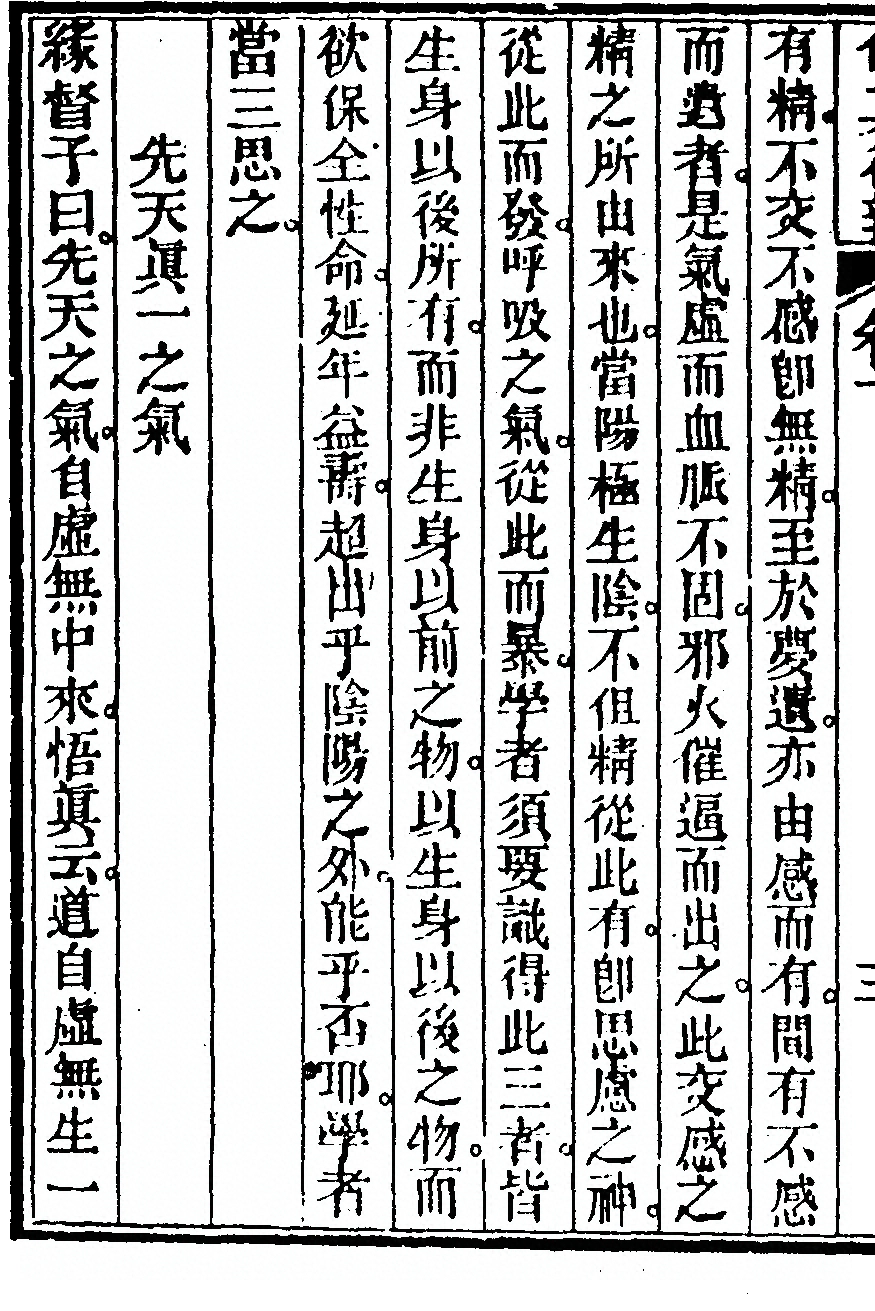 有精不交不感卽無精至於夢遺亦由感而有間有不感
而遺者是氣虛而血脈不固邪火催逼而出之此交感之
精之所由來也當陽極生陰不但精從此有卽思慮之神
從此而發呼吸之氣從此而暴學者須要識得此三者皆
生身以後所有而非生身以前之物以生身以後之物而
欲保全性命延年益壽超出乎陰陽之外能乎否耶學者
當三思之
先天眞一之氣
緣督子曰先天之氣自虛無中來悟眞云道自虛無生一